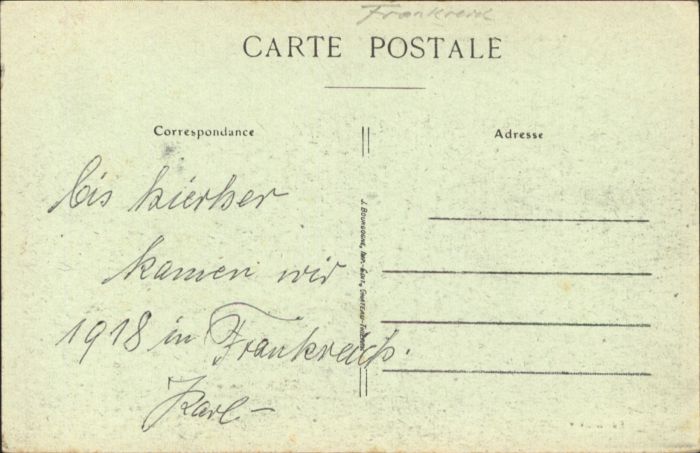 Frankreich
CARTE POSTALE
Correspondance
Adresse
bis hierher
kamen wir
1918 in Frankreich.
Karl
J. BOURGOGNE, Imp.-Édit., CHATEAU-THIERRY